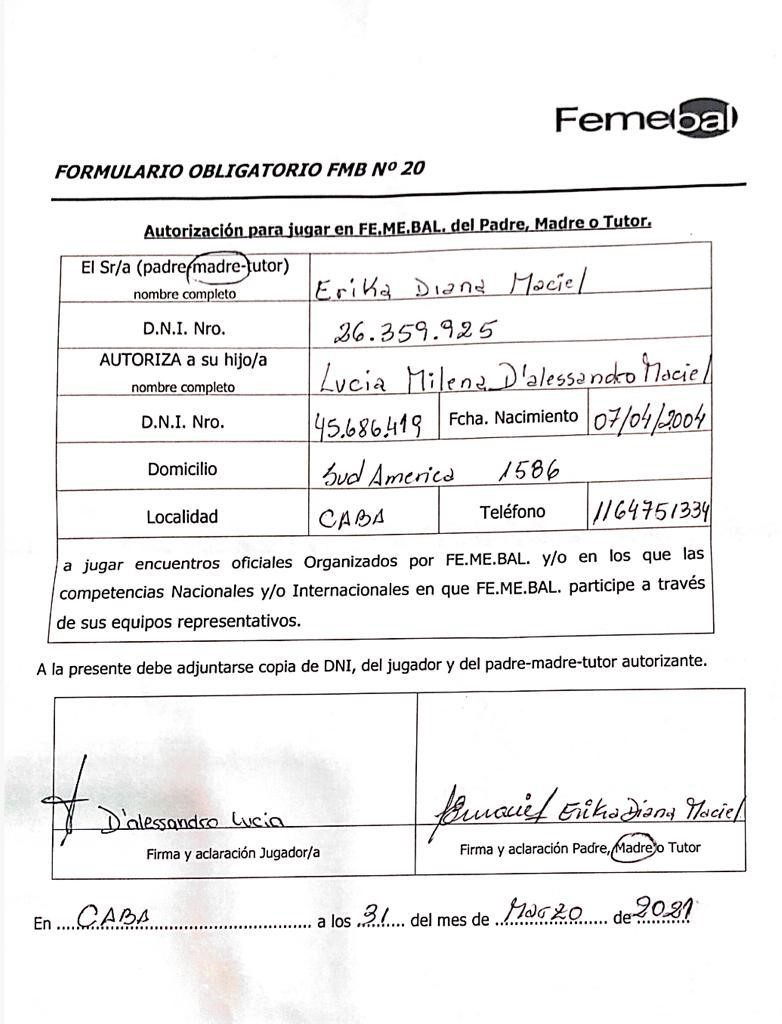 Femebal
FORMULARIO OBLIGATORIO FMB Nº 20
Autorización para jugar en FE.ME.BAL. del Padre, Madre o Tutor.
El Sr/a (padre-madre-tutor)
nombre completo
Erika Diana Maciel
D.N.I. Nro.
26.359.925
AUTORIZA a su hijo/a
nombre completo
Lucia Milena D'alessandro Maciel
D.N.I. Nro.
45.686.419
Fcha. Nacimiento
07/04/2004
Domicilio
Sud America 1586
Localidad
CABA
Teléfono
1164751334
a jugar encuentros oficiales Organizados por FE.ME.BAL. y/o en los que las
competencias Nacionales y/o Internacionales en que FE.ME.BAL. participe a través
de sus equipos representativos.
A la presente debe adjuntarse copia de DNI, del jugador y del padre-madre-tutor autorizante.
D'alessandro Lucia
Firma y aclaración Jugador/a
Erika Diana Maciel
Firma y aclaración Padre, Madre o Tutor
En CABA a los 31 del mes de Marzo de 2021